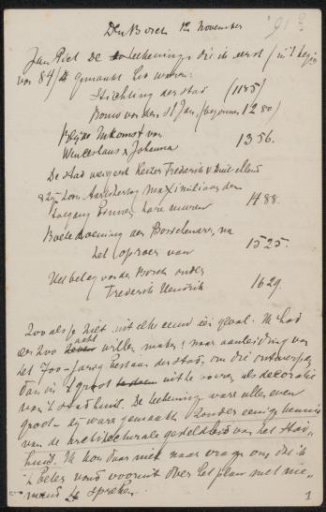 Den Bosch 1e November '91
Jan Piet De teekeningen die ik eerst (in 't begin
van 84) gemaakt heb waren:
Stichting der stad (1185)
Bouw van den St Jan (begonnen 1280)
Blijde Inkomst van
Wenceslaus & Johanna 1356.
De stad weigert Keizer Frederik v Duitschland
& Zijn Zoon Aartshertog Maximiliaan den
toegang binnen hare muren 1488.
Boetedoening der Bosschenaren, na
het oproer van 1525.
Het beleg van den Bosch onder
Frederik Hendrik 1629.
Zooals je ziet uit elke eeuw een geval. Ik had
er zoo willen maken naar aanleiding van
het 700-jarig bestaan der stad, om die ontwerpen
dan in 't groot uit te voeren als decoratie
van 't stadhuis. De teekeningen waren alle even
groot — zij waren gemaakt zonder eenige kennis
van de architecturale gesteldheid van het stad-
huis. Ik kon daar niet naar vragen omdat ik
't beter vond vooruit over het plan met nie-
mand te spreken.
1